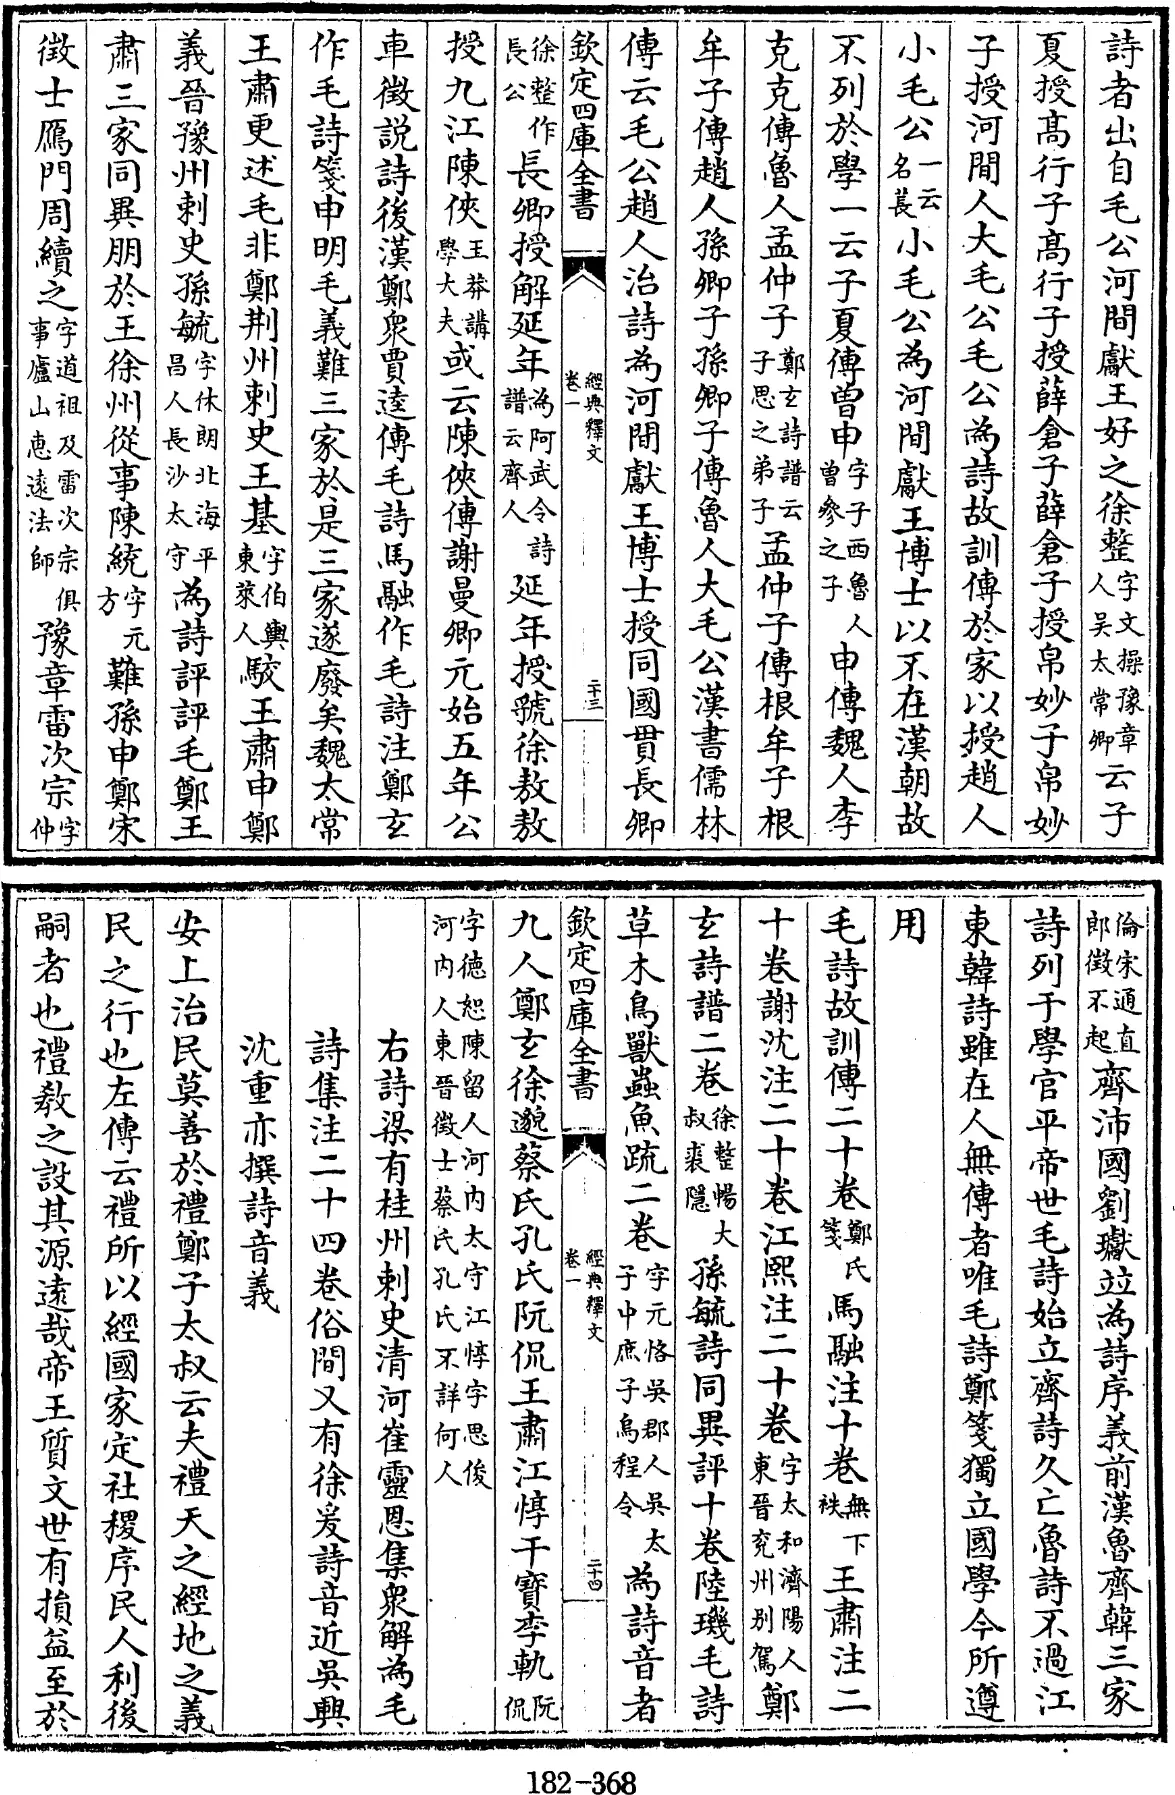 詩者出自毛公河間獻王好之徐整字文操豫章人吴太常卿云子
夏授高行子高行子授薛倉子薛倉子授帛妙子帛妙
子授河間人大毛公毛公為詩故訓傳於家以授趙人
小毛公一云名萇小毛公為河間獻王博士以不在漢朝故
不列於學一云子夏傳曾申字子西魯人曾參之子申傳魏人李
克克傳魯人孟仲子鄭玄詩譜云子思之弟子孟仲子傳根牟子根
牟子傳趙人孫卿子孫卿子傳魯人大毛公漢書儒林
傳云毛公趙人治詩為河間獻王博士授同國貫長卿
欽定四庫全書
經典釋文
卷一
二十三
徐整作長公長卿授解延年為阿武令詩譜云齊人延年授虢徐敖敖
授九江陳俠王莽講學大夫或云陳俠傳謝曼卿元始五年公
車徵説詩後漢鄭衆賈逵傳毛詩馬融作毛詩注鄭玄
作毛詩箋申明毛義難三家於是三家遂廢矣魏太常
王肅更述毛非鄭荆州刺史王基字伯輿東萊人駮王肅申鄭
義晉豫州刺史孫毓字休朗北海平昌人長沙太守為詩評評毛鄭王
肅三家同異朋於王徐州從事陳統字元方難孫申鄭宋
徵士鴈門周續之字道祖及雷次宗俱事廬山惠逺法師豫章雷次宗字仲
倫宋通直郎徵不起齊沛國劉瓛竝為詩序義前漢魯齊韓三家
詩列于學官平帝世毛詩始立齊詩久亡魯詩不過江
東韓詩雖在人無傳者唯毛詩鄭箋獨立國學今所遵
用
毛詩故訓傳二十卷鄭氏箋馬融注十卷無下袟王肅注二
十卷謝沈注二十卷江熙注二十卷字太和濟陽人東晉兖州别駕鄭
玄詩譜二卷徐整暢大叔裘隱孫毓詩同異評十卷陸璣毛詩
草木鳥獸蟲魚疏二卷字元恪吳郡人吳太子中庶子烏程令為詩音者
欽定四庫全書
經典釋文
卷一
二十四
九人鄭玄徐邈蔡氏孔氏阮侃王肅江惇干寶李軌阮侃
字徳恕陳留人河内太守江惇字思俊河内人東晉徵士蔡氏孔氏不詳何人
右詩梁有桂州刺史清河崔靈恩集衆解為毛
詩集注二十四卷俗間又有徐爰詩音近吳興
沈重亦撰詩音義
安上治民莫善於禮鄭子太叔云夫禮天之經地之義
民之行也左傳云禮所以經國家定社稷序民人利後
嗣者也禮教之設其源逺哉帝王質文世有損益至於
182-368